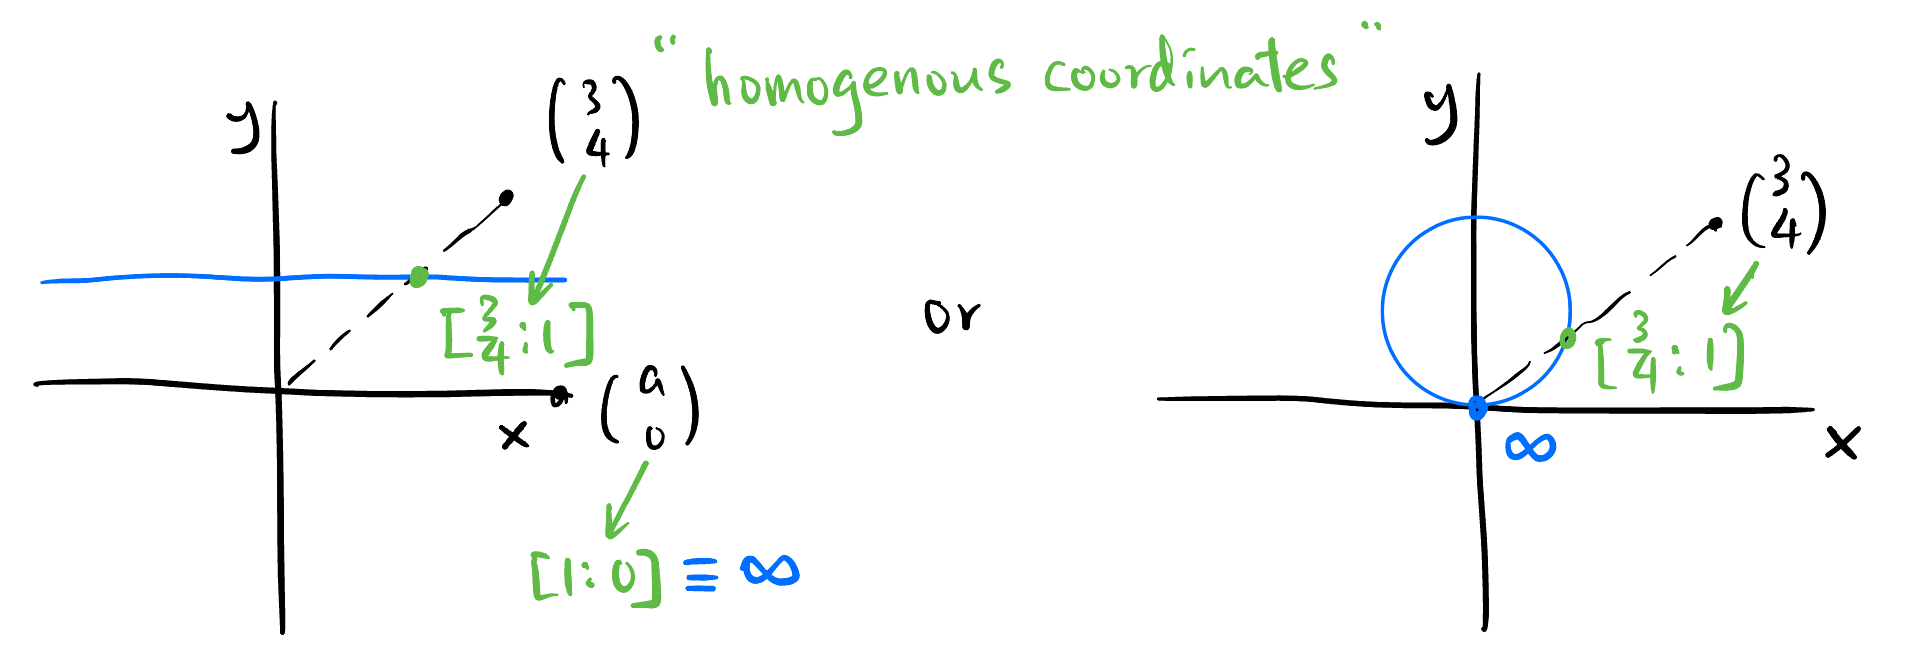 “ homogenous coordinates ”
y
(3
4)
[3/4 : 1]
(a
0)
x
[1 : 0] ≡ ∞
or
y
(3
4)
[3/4 : 1]
∞
x